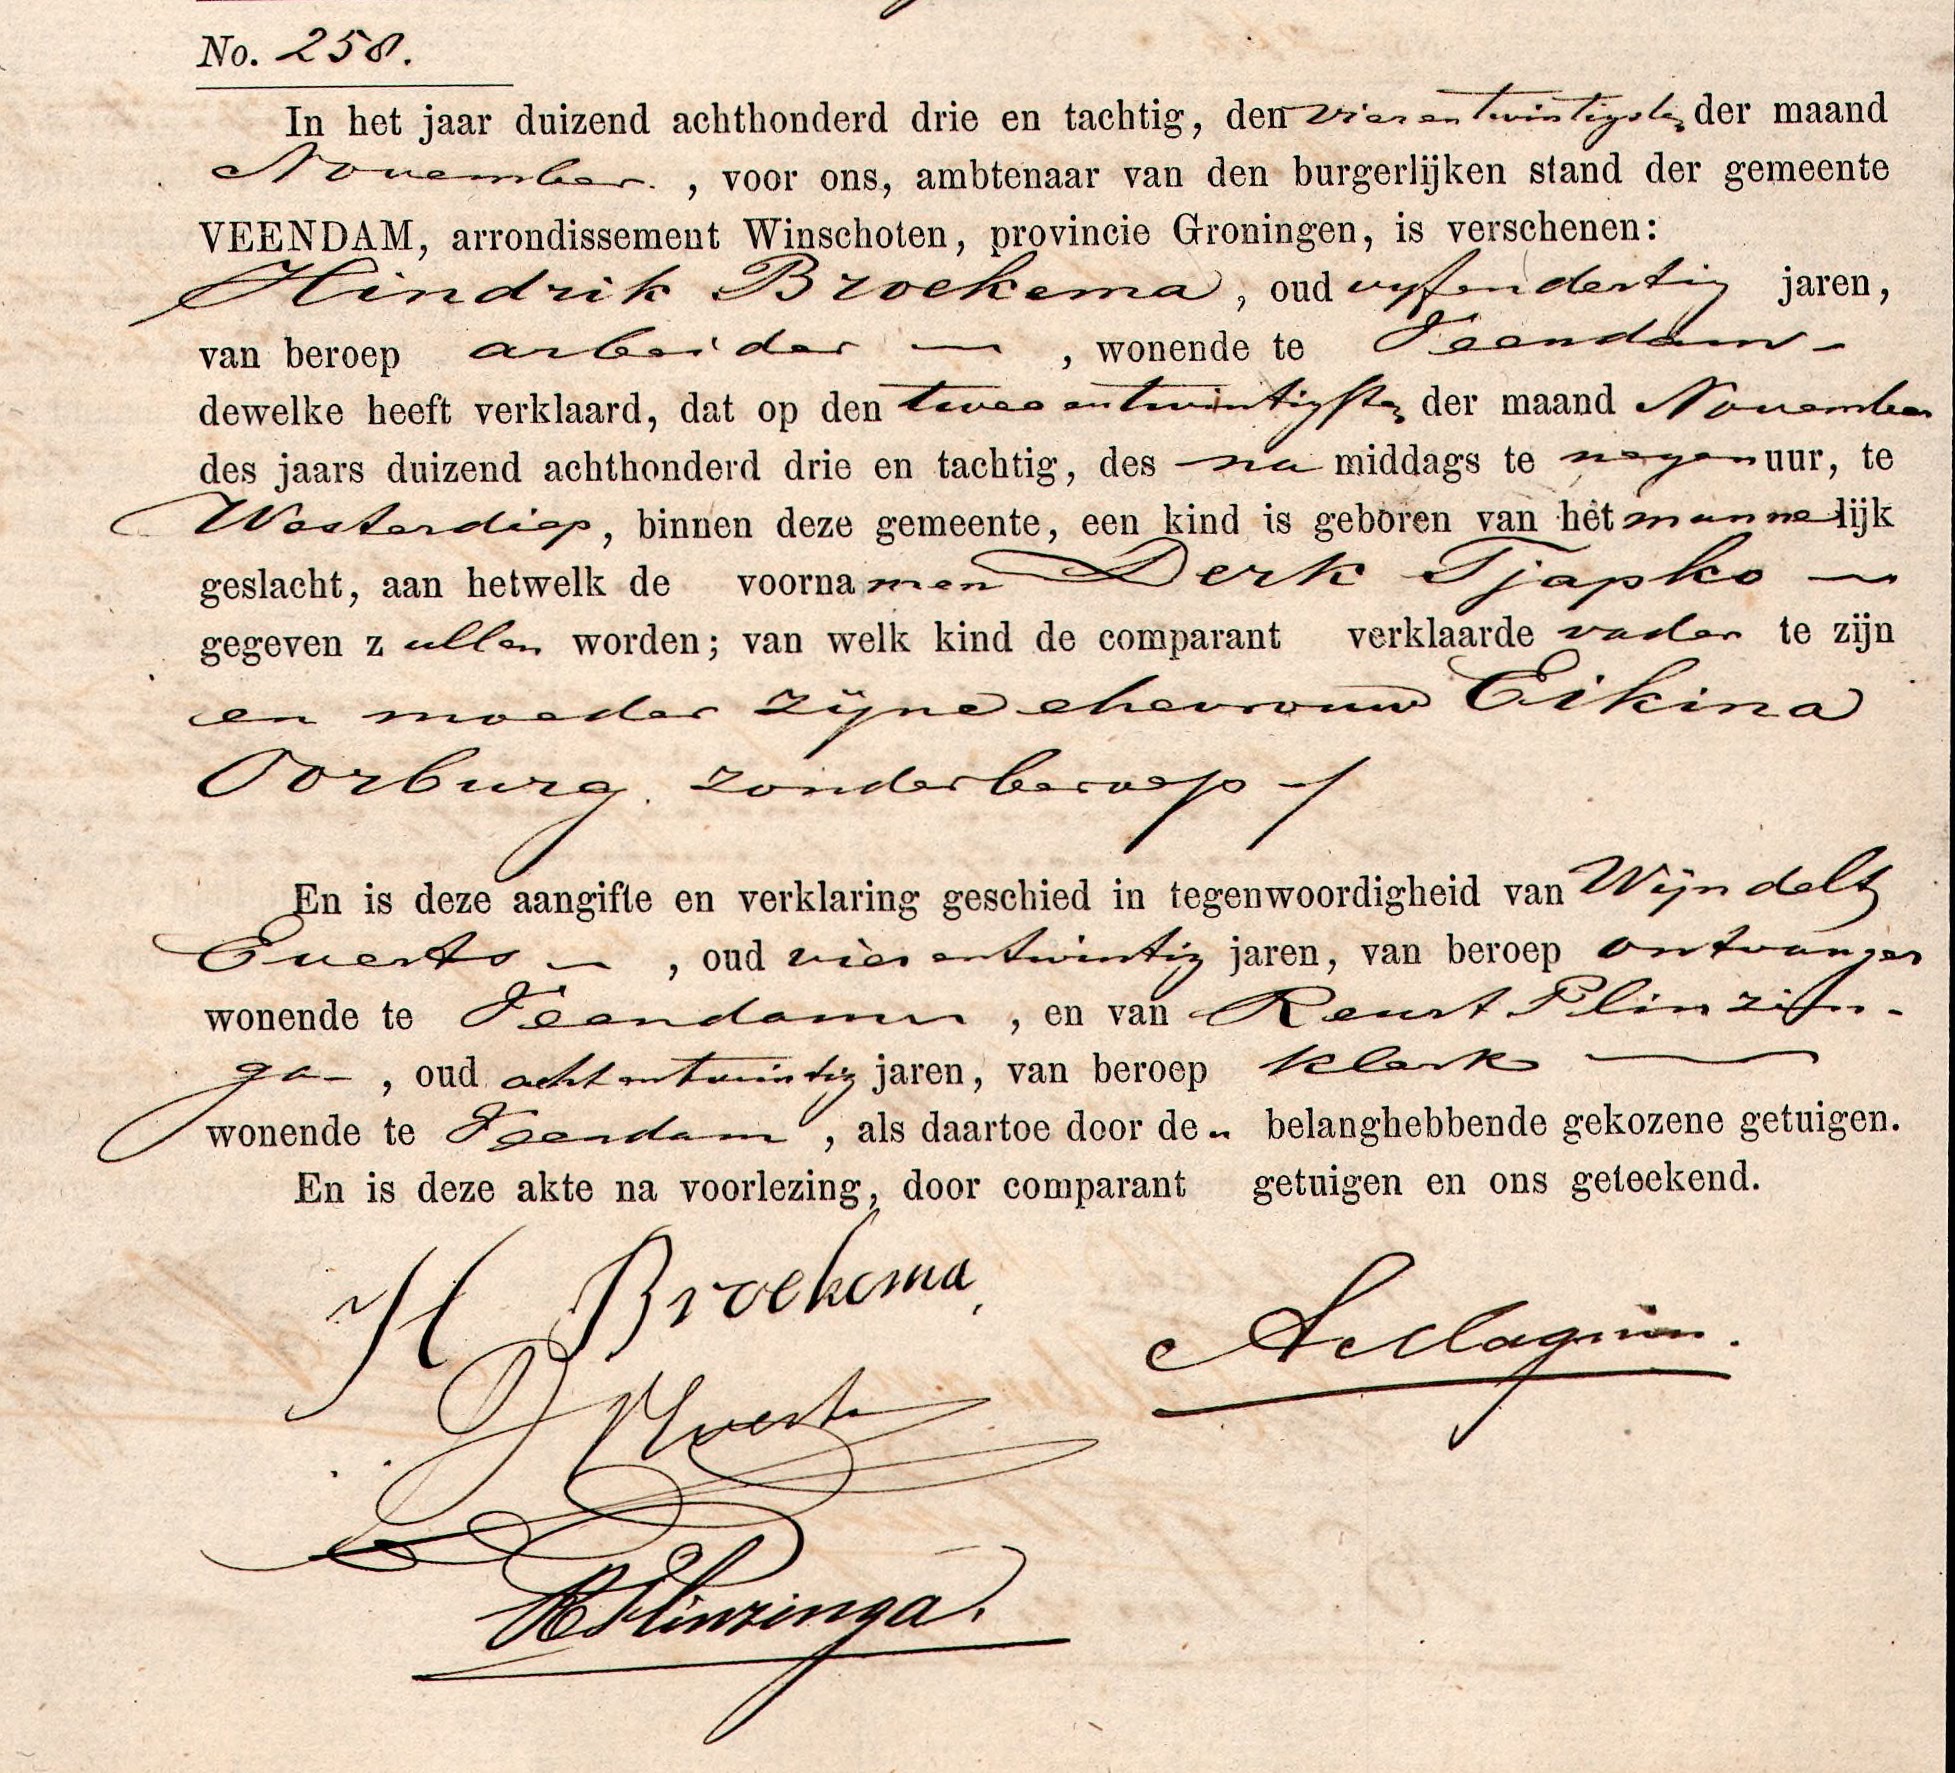 No. 258.
In het jaar duizend achthonderd drie en tachtig, den vier en twintigsten der maand
November , voor ons, ambtenaar van den burgerlijken stand der gemeente
VEENDAM, arrondissement Winschoten, provincie Groningen, is verschenen:
Hindrik Broekema , oud vijfendertig jaren,
van beroep arbeider — , wonende te Veendam -
dewelke heeft verklaard, dat op den twee en twintigsten der maand November
des jaars duizend achthonderd drie en tachtig, des na middags te negen uur, te
Westerdiep, binnen deze gemeente, een kind is geboren van het mannelijk
geslacht, aan hetwelk de voornamen Derk Tjapko —
gegeven zullen worden; van welk kind de comparant verklaarde vader te zijn
en moeder zijne ehevrouw Eikina
Oorburg. zonder beroep -/
En is deze aangifte en verklaring geschied in tegenwoordigheid van Wijndelt
Everts — , oud vier en twintig jaren, van beroep ontvanger
wonende te Veendam , en van Reurt Flinzin-
ga - , oud acht en twintig jaren, van beroep klerk —
wonende te Veendam , als daartoe door de „ belanghebbende gekozene getuigen.
En is deze akte na voorlezing, door comparant getuigen en ons geteekend.
H Broekema
Everts
R Flinzinga.